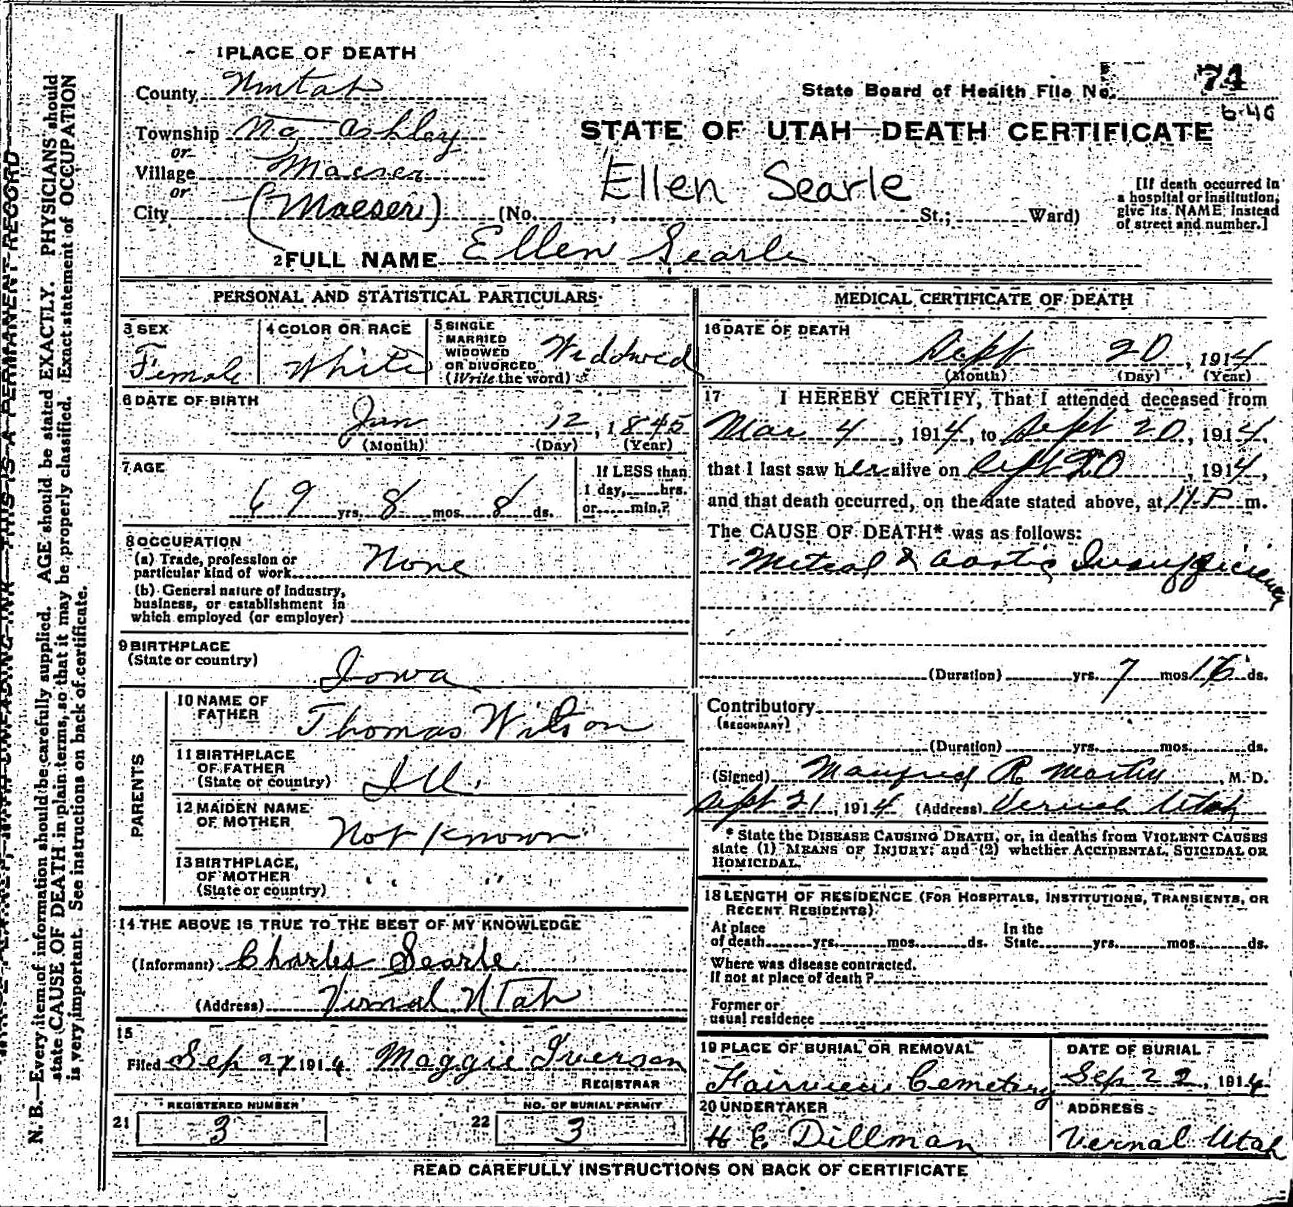 1 PLACE OF DEATH
County
State Board of Health File No. 74
6-40
Township Ashley
STATE OF UTAH—DEATH CERTIFICATE
or
Village Maeser
Ellen Searle
or
City (Maeser) (No. St.; Ward)
[If death occurred in
a hospital or institution,
give its NAME instead
of street and number.]
2 FULL NAME Ellen Searle
PERSONAL AND STATISTICAL PARTICULARS
3 SEX
Female
4 COLOR OR RACE
White
5 SINGLE
MARRIED
WIDOWED
OR DIVORCED
(Write the word)
Widowed
6 DATE OF BIRTH
Jan 12, 1845
(Month) (Day) (Year)
7 AGE
69 yrs. 8 mos. 8 ds.
If LESS than
1 day, hrs.
or min.?
8 OCCUPATION
(a) Trade, profession or
particular kind of work None
(b) General nature of Industry,
business, or establishment in
which employed (or employer)
9 BIRTHPLACE
(State or country)
Iowa
PARENTS
10 NAME OF
FATHER
Thomas Wilson
11 BIRTHPLACE
OF FATHER
(State or country)
Ill.
12 MAIDEN NAME
OF MOTHER
Not Known
13 BIRTHPLACE,
OF MOTHER
(State or country)
" "
14 THE ABOVE IS TRUE TO THE BEST OF MY KNOWLEDGE
(Informant) Charles Searle
(Address) Vernal Utah
15
Filed Sep 27 1914 Maggie Iverson
REGISTRAR
REGISTERED NUMBER
21 3
NO. OF BURIAL PERMIT
22 3
MEDICAL CERTIFICATE OF DEATH
16 DATE OF DEATH
Sept 20, 1914
(Month) (Day) (Year)
17 I HEREBY CERTIFY, That I attended deceased from
Mar 4, 1914, to Sept 20, 1914,
that I last saw her alive on Sept 20, 1914,
and that death occurred, on the date stated above, at 11 P m.
The CAUSE OF DEATH* was as follows:
Mitral & Aortic Insufficiency
(Duration) yrs. 7 mos. 16 ds.
Contributory
(SECONDARY)
(Duration) yrs. mos. ds.
(Signed) Manfred R Martin, M. D.
Sept 21, 1914 (Address) Vernal Utah
* State the DISEASE CAUSING DEATH, or, in deaths from VIOLENT CAUSES
state (1) MEANS OF INJURY; and (2) whether ACCIDENTAL, SUICIDAL OR
HOMICIDAL.
18 LENGTH OF RESIDENCE (FOR HOSPITALS, INSTITUTIONS, TRANSIENTS, OR
RECENT RESIDENTS)
At place
of death yrs. mos. ds.
In the
State yrs. mos. ds.
Where was disease contracted,
If not at place of death?
Former or
usual residence
19 PLACE OF BURIAL OR REMOVAL
Fairview Cemetery
DATE OF BURIAL
Sep 22, 1914
20 UNDERTAKER
H E Dillman
ADDRESS
Vernal Utah
READ CAREFULLY INSTRUCTIONS ON BACK OF CERTIFICATE
THIS IS A PERMANENT RECORD
N. B.—Every item of information should be carefully supplied. AGE should be stated EXACTLY. PHYSICIANS should
state CAUSE OF DEATH in plain terms, so that it may be properly classified. Exact statement of OCCUPATION
is very important. See instructions on back of certificate.